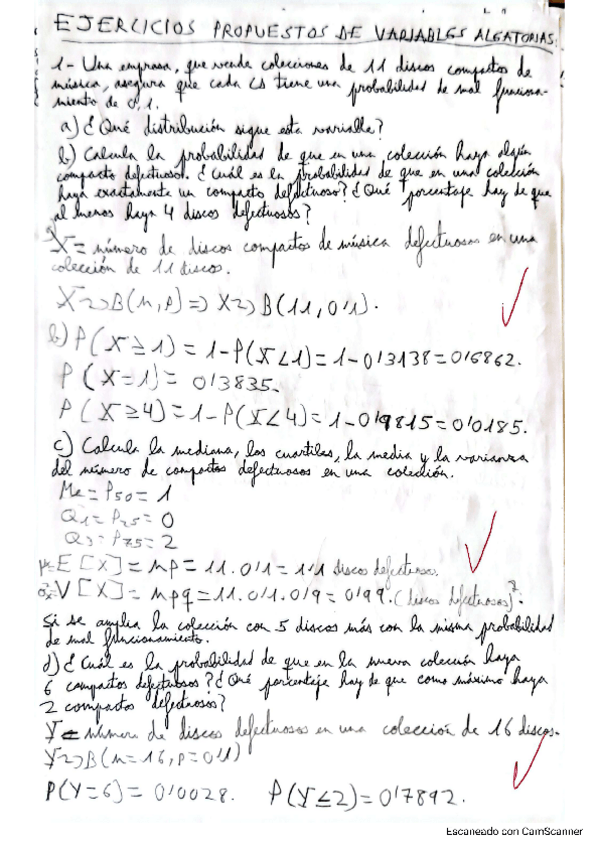 EJERCICIOS PROPUESTOS DE VARIABLES ALEATORIAS.
1- Una empresa, que vende colecciones de 11 discos compactos de
música, asegura que cada CD tiene una probabilidad de mal funciona-
miento de 0'1.
a) ¿Qué distribución sigue esta variable?
b) Calcula la probabilidad de que en una colección haya algún
compacto defectuoso. ¿Cuál es la probabilidad de que en una colección
haya exactamente un compacto defectuoso? ¿Qué porcentaje hay de que
al menos haya 4 discos defectuosos?
X = número de discos compactos de música defectuosos en una
colección de 11 discos.
X~>B(n,p) => X~>B(11,0'1).
b) P(X≥1) = 1-P(X<1) = 1-0'3138 = 0'6862.
P(X=1) = 0'3835.
P(X≥4) = 1-P(X<4) = 1-0'9815 = 0'0185.
c) Calcula la mediana, los cuartiles, la media y la varianza
del número de compactos defectuosos en una colección.
Me = P50 = 1
Q1 = P25 = 0
Q3 = P75 = 2
μ = E[X] = np = 11·0'1 = 1'1 discos defectuosos.
V[X] = npq = 11·0'1·0'9 = 0'99 (discos defectuosos)².
Si se amplia la colección con 5 discos más con la misma probabilidad
de mal funcionamiento.
d) ¿Cuál es la probabilidad de que en la nueva colección haya
6 compactos defectuosos? ¿Qué porcentaje hay de que como máximo haya
2 compactos defectuosos?
Y = número de discos defectuosos en una colección de 16 discos.
Y~>B(n=16, p=0'1)
P(Y=6) = 0'0028. P(Y≤2) = 0'7892.
Escaneado con CamScanner